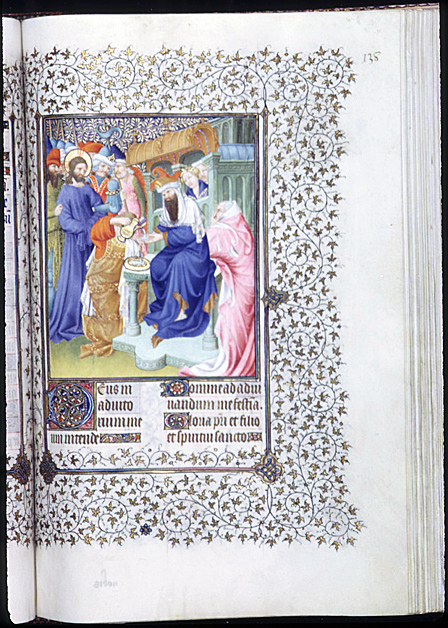 135
Deus in
adiuto
rium me
um intende
Domine ad adiu
uandum me festia.
Gloria pri et filio
et spiritui sancto